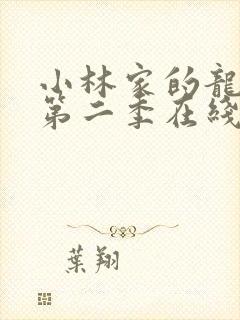 小林家的龍
第二季在綫
葉翔